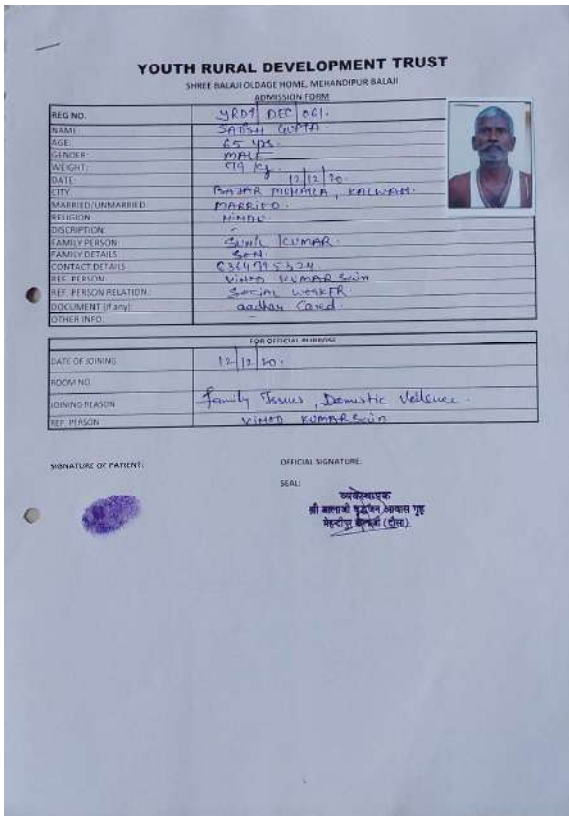 YOUTH RURAL DEVELOPMENT TRUST
SHREE BALAJI OLDAGE HOME, MEHANDIPUR BALAJI
ADMISSION FORM
REG NO. YRDT DEC 061.
NAME SATISH GUPTA
AGE: 65 yrs.
GENDER: MALE
WEIGHT: kg.
DATE: 12/12/20.
CITY BAJAR
MARRIED/UNMARRIED MARRIED.
RELIGION HINDU.
DISCRIPTION: -
FAMILY PERSON: SUNIL KUMAR.
FAMILY DETAILS SON.
CONTACT DETAILS
REF. PERSON: VINOD KUMAR
REF. PERSON RELATION: SOCIAL WORKER.
DOCUMENT (if any): aadhar Card.
OTHER INFO. -
FOR OFFICIAL PURPOSE
DATE OF JOINING 12/12/20.
ROOM NO.
JOINING REASON Family Issues, Domistic
REF. PERSON VINOD KUMAR
SIGNATURE OF PATIENT:
OFFICIAL SIGNATURE:
SEAL:
व्यवस्थापक
श्री बालाजी वृद्धजन आवास गृह
मेहन्दीपुर बालाजी (दौसा)